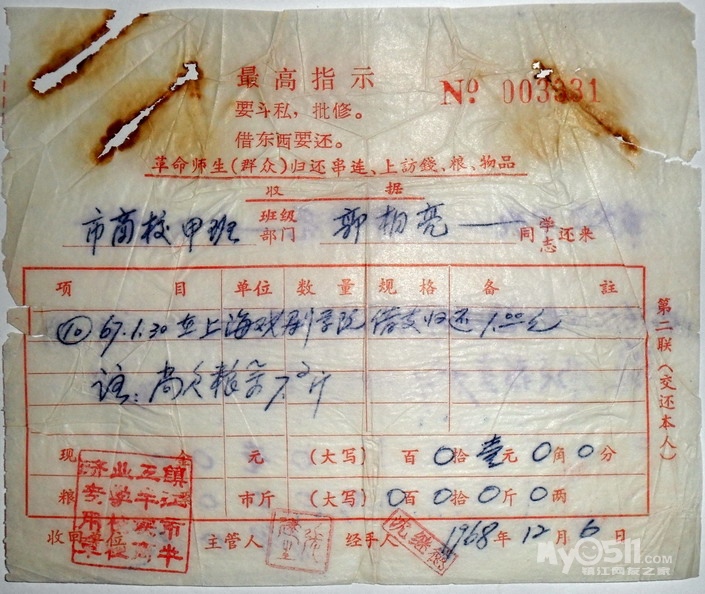 最高指示
№ 003331
要斗私，批修。
借东西要还。
革命师生(群众)归还串连、上訪錢、粮、物品
收 据
市商校甲班 班级部门 郭 亮 同学志还来
项 目 单位 数量 规格 备 註
⑩ 67.1.30在上海戏剧学院借支归还1.00元
註：尚欠粮票7 斤
现 金 元 (大写) 百 0拾壹元0角0分
粮 市斤 (大写) 0百0拾0斤0两
收 单位 主管人 经手人 1968年12月6日
镇江市
专用章
第二联（交还本人）
My0511.com
镇江网友之家